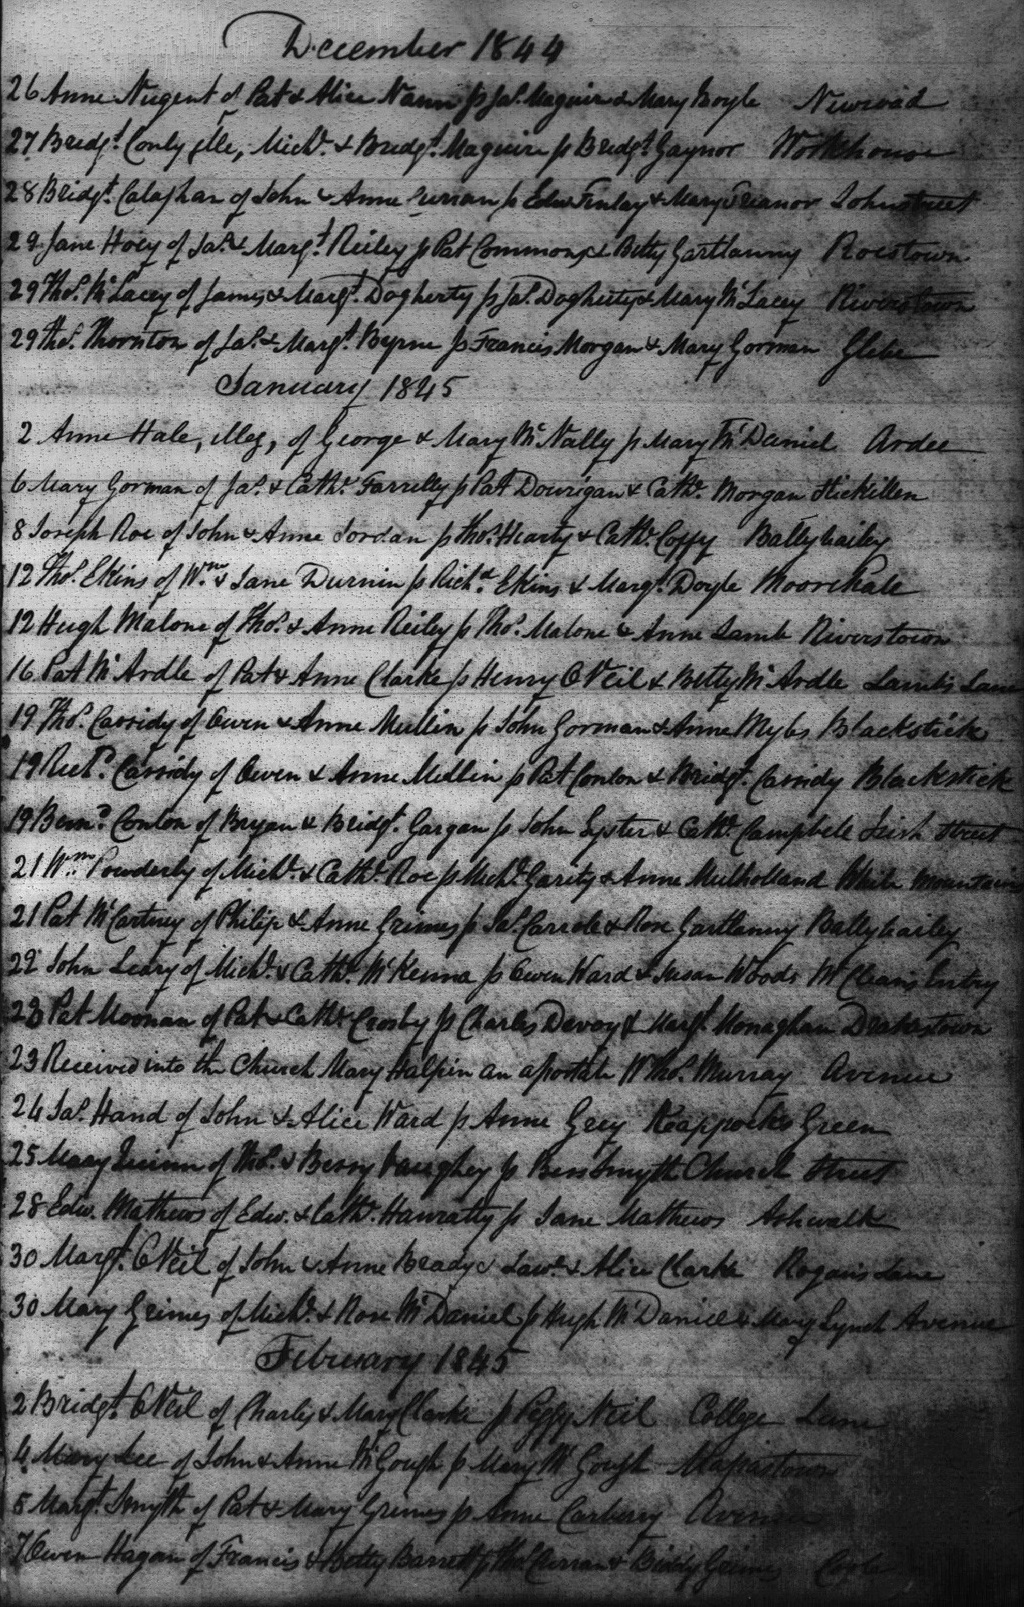 December 1844
26 Anne Nugent of Pat & Alice Nann p Jas. Maguire & Mary Boyle Newroad
27 Bridgt. Conly Ille, Michl. & Bridgt. Maguire p Bridgt. Gaynor Workhouse
28 Bridgt. Calaghan of John & Anne Curran p Edw Finlay & Mary Treanor Johnstreet
29 Jane Hoey of Jas. & Margt. Reiley p Pat Commons & Betty Gartlanny Roestown
29 Thos. McLacey of James & Margt. Dogherty p Jas. Dogherty & Mary McLacey Riverstown
29 Thos. Thornton of Jas. & Margt. Byrne p Francis Morgan & Mary Gorman Glebe
January 1845
2 Anne Hale, illeg, of George & Mary McNally p Mary McDaniel Ardee
6 Mary Gorman of Jas. & Cathe. Farrelly p Pat Dourigan & Cathe. Morgan Stickillen
8 Joseph Roe of John & Anne Jordan p Thos. Hearty & Cathe. Coffy Ballybailey
12 Thos. Ekins of Wm. & Jane Durnin p Richd. Ekins & Margt. Doyle Moorehale
12 Hugh Malone of Thos. & Anne Reiley p Thos. Malone & Anne Lamb Riverstown
16 Pat McArdle of Pat & Anne Clarke p Henry O'Neil & Betty McArdle Lamb's Lane
19 Thos. Cassidy of Owen & Anne Mullin p John Gorman & Anne Myles Blackstick
19 Richd. Cassidy of Owen & Anne Mullin p Pat Conlon & Bridgt. Cassidy Blackstick
19 Bernd. Conlon of Bryan & Bridgt. Gargan p John Syster & Cathe. Campbell Irish Street
21 Wm. Powderly of Michl. & Cathe. Roe p Michl. Garity & Anne Mulholland White Mountain
21 Pat McCartney of Philip & Anne Grimes p Jas. Carroll & Rose Gartlanny Ballybailey
22 John Leary of Michl. & Cathe. McKenna p Owen Ward & Susan Woods McCleans Entry
23 Pat Moonan of Pat & Cathe. Crosby p Charles Devoy & Margt. Monaghan Drakestown
23 Received into the Church Mary Halpin an apostate W Thos. Murray Avenue
24 Jas. Hand of John & Alice Ward p Anne Grey Knappocks Green
25 Mary Quinn of Thos. & Bessy Vaughey p Bess Smyth Church Street
28 Edw. Mathews of Edw. & Cathe. Hanratty p Jane Mathews Ashwalk
30 Margt. O'Neil of John & Anne Brady & Lawe. & Alice Clarke Rogans Lane
30 Mary Grimes of Michl. & Rose McDaniel p Hugh McDaniel & Mary Lynch Avenue
February 1845
2 Bridgt. O'Neil of Charles & Mary Clarke p Peggy Neil College Lane
4 Mary Lee of John & Anne McGough p Mary McGough Mapastown
5 Margt. Smyth of Pat & Mary Grimes p Anne Carberry Avenue
7 Owen Hagan of Francis & Betty Barrett p Thos. Curran & Biddy Grimes